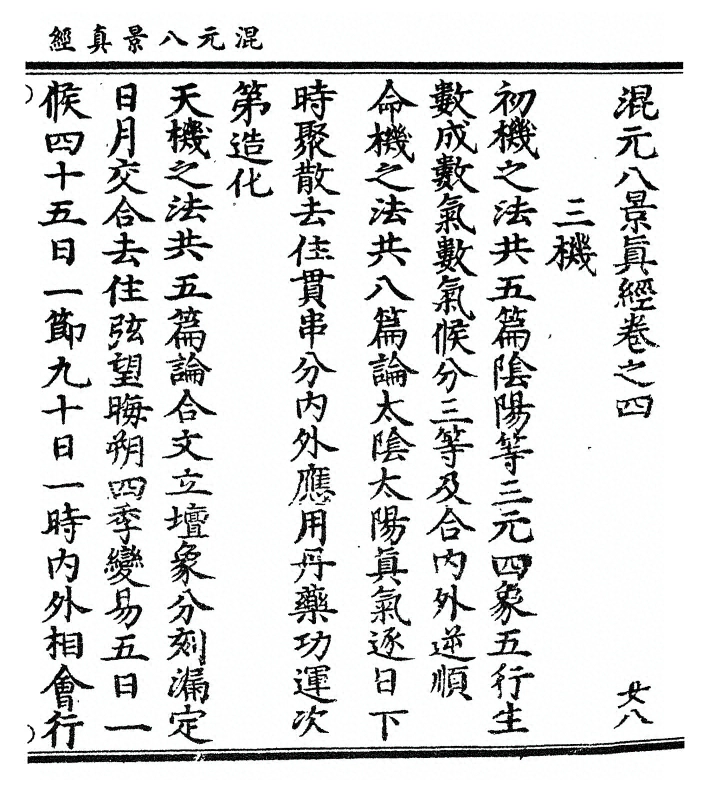 混元八景真經
混元八景眞經卷之四 廿八
三機
初機之法共五篇陰陽等三元四象五行生
數成數氣數氣候分三等及合內外逆順
命機之法共八篇論太陰太陽眞氣逐日下
時聚散去住貫串分內外應用丹藥功運次
第造化
天機之法共五篇論合文立壇象分刻漏定
日月交合去住弦望晦朔四季變易五日一
候四十五日一節九十日一時內外相會行